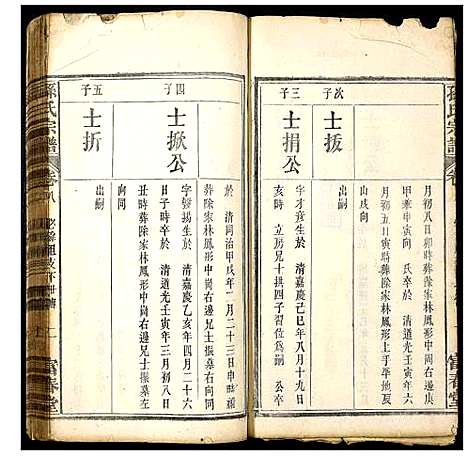 孫氏宗譜
卷
月初八日卯時葬除家林鳳形中向左邊庚
甲兼寅申向　氏卒於　清道光壬寅年六
月初五日寅時葬除家林鳳形上手平地艮
山戌向
次子
士拔
三子
士捐公
字才彥生於　清嘉慶己巳年八月十九日
亥時　立房兄十拱四子習位爲嗣　公卒
於　清同治甲戌年二月二十三日
葬除家林鳳形中向右邊兄士振墓右向同
四子
士掀公
字發揚生於　清嘉慶乙亥年四月二十六
日子時卒於　清道光壬寅年三月初八日
丑時葬除家林鳳形中向左邊兄士振墓左
向同
五子
士折
出嗣
孫氏宗譜
卷八
二
富春堂